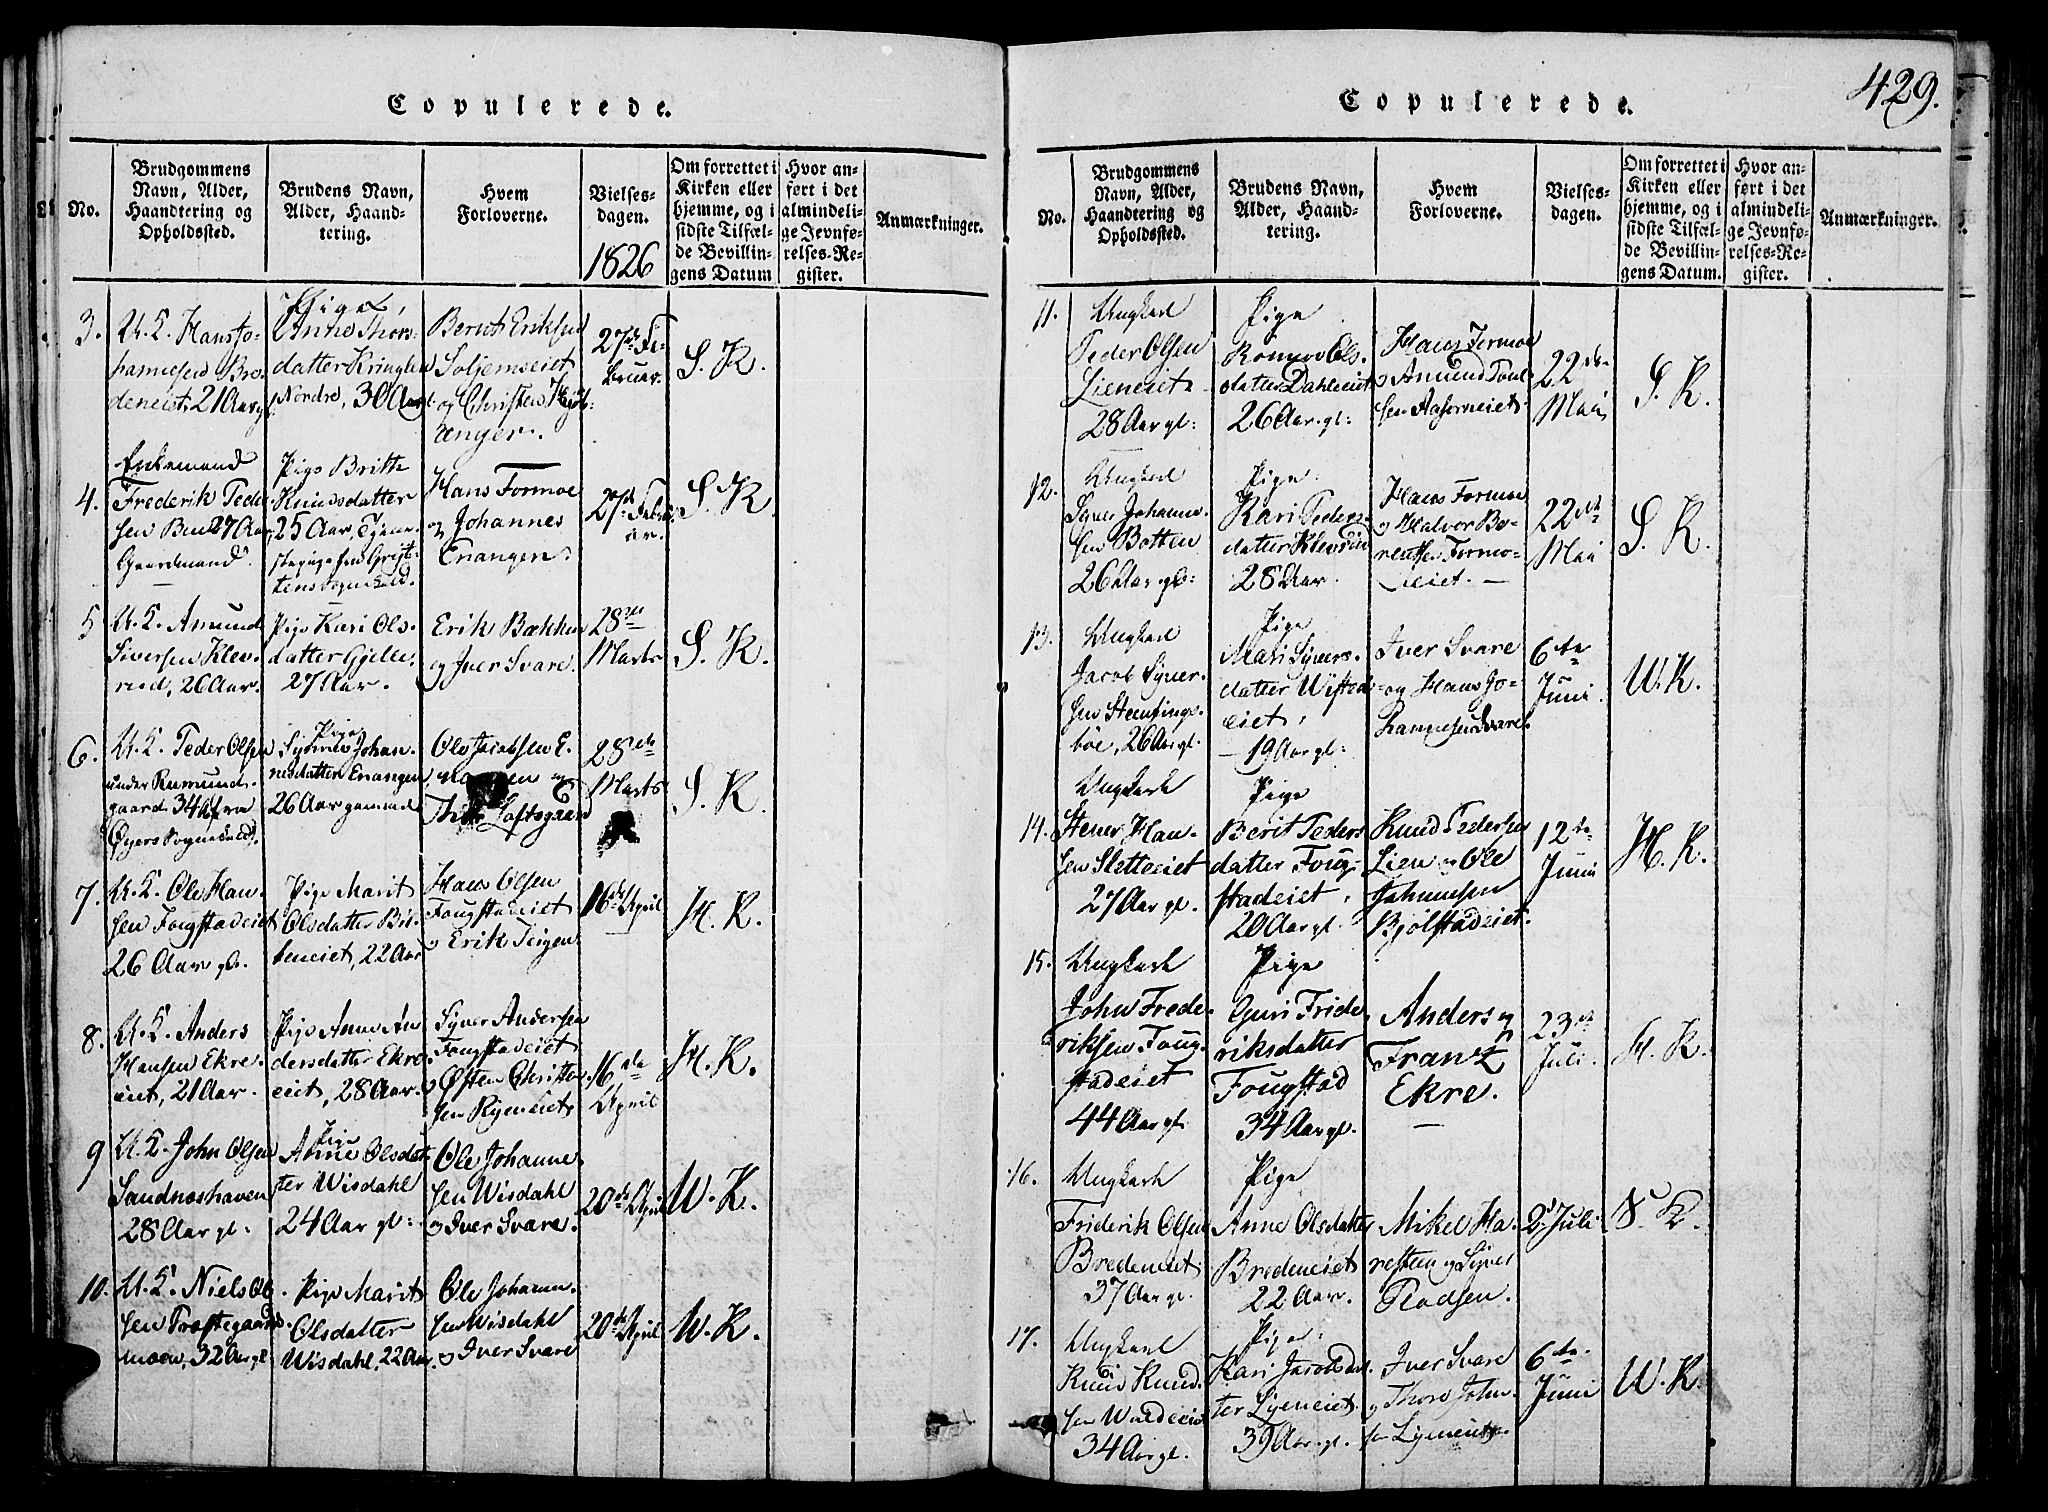 429.
Copulerede.
No.
Brudgommens
Navn, Alder,
Haandtering og
Opholdssted.
Brudens Navn,
Alder, Haand-
tering.
Hvem
Forloverne.
Vielses-
dagen.
1826
Om forrettet i
Kirken eller
hjemme, og i
sidste Tilfæl-
de Bevillin-
gens Datum
Hvor an-
ført i det
almindeli-
ge Jevnfø-
relses-Re-
gister.
Anmærkninger.
3.
U. K. Hans Jo-
hannesen Bre-
deneiet, 21 Aar gl.
Pige,
Anne Thors-
datter Kringlen
Nordre, 30 Aar gl.
Bernt Eriksen
Soljemseiet
og Christen
anger.
27de Fe-
bruar.
S. K.
4.
Enkemand
Frederik Peder-
sen 27 Aar
Gaardmand.
Pige Britte
Knudsdatter
25 Aar, Tjene-
stepige
Hans Formoe
og Johannes
Enangen.
27de Febru-
ar.
S. K.
5
U. K. Amund
Siversen Klev-
rud, 26 Aar.
Pige Kari Ols-
datter Gjelle,
27 Aar.
Erik Bakken
og Iver Svare.
28de
Marts
S. K.
6.
U. K. Peder Olsen
under Rumund-
gaard 34 Aar fra
Øyers Sognekald.
Pige
Johan-
nesdatter Enangen
26 Aar gammel
Ole Jacobsen E-
og
Loftsgaard
28de
Marts
S. K.
7.
U. K. Ole Han-
sen Fougstadeiet
26 Aar gl.
Pige Marit
Olsdatter
22 Aar
Hans Olsen
Fougstadeiet
og Erik Teigen.
16de April
H. K.
8.
U. K. Anders
Hansen Ekre-
eiet, 21 Aar.
Pige Anne An-
dersdatter Ekre-
eiet, 28 Aar.
Syver Andersen
Fougstadeiet
og Østen
sen
16de
April
H. K.
9
U. K. John Olsen
Sandneshaven
28 Aar gl:
Pige
Anne Olsdat-
ter Wisdahl
24 Aar gl:
Ole Johanne-
sen Wisdahl
og Iver Svare.
20de April
W. K.
10.
U. K. Niels Ol-
sen
32 Aar gl
Pige Marit
Olsdatter
Wisdahl, 22 Aar.
Ole Johanne-
sen Wisdahl
og Iver Svare
20de April
W. K.
Copulerede.
No.
Brudgommens
Navn, Alder,
Haandtering og
Opholdssted.
Brudens Navn,
Alder, Haand-
tering.
Hvem
Forloverne.
Vielses-
dagen.
Om forrettet i
Kirken eller
hjemme, og i
sidste Tilfæl-
de Bevillin-
gens Datum.
Hvor an-
ført i det
almindeli-
ge Jevnfø-
relses-Re-
gister.
Anmærkninger.
11.
Ungkarl
Peder Olsen
Lieneiet
28 Aar gl:
Pige
Ols-
datter Dahleiet
26 Aar. gl:
Hans Formoe
og Amund Poul-
sen
22de
Mai
S. K.
12.
Ungkarl
Syver Johanne-
sen Botten
26 Aar gl:
Pige
Kari Peders-
datter
28 Aar.
Hans Formoe
og Halvor Be-
rentsen Formo-
eiet.
22de
Mai
S. K.
13.
Ungkarl
Jacob Syver-
sen Stemsings-
boe, 26 Aar gl.
Pige
Mari Syvers-
datter
eiet,
19 Aar gl:
Iver Svare
og Hans Jo-
hannesen Svare.
6te
Juni
W. K.
14.
Ungkarl
Stener Han-
sen Sletteeiet
27 Aar gl.
Pige
Berit Peders-
datter Foug-
stadeiet,
20 Aar gl.
Knud Pedersen
Lien og Ole
Johannesen
Bjølstadeiet.
12te
Juni
H. K.
15.
Ungkarl
John Frede-
riksen Foug-
stadeiet
44 Aar gl.
Pige
Guri Fride-
riksdatter
Fougstad
34 Aar gl.
Anders og
Frantz
Ekre.
23de
Juli.
H. K.
16.
Ungkarl
Friderik Olsen
Bredeneiet
37 Aar gl.
Pige
Anne Olsdatter
Bredeneiet
22 Aar.
Mikel Ha-
restuen og Syver
Pladsen.
2d Juli
S. K.
17.
Ungkarl
Knud Knud-
sen
34 Aar gl.
Pige
Kari Jacobsdat-
ter Lyeneiet
39 Aar gl.
Iver Svare
og Thore John-
sen Lyeneiet.
6te
Juni
W. K.